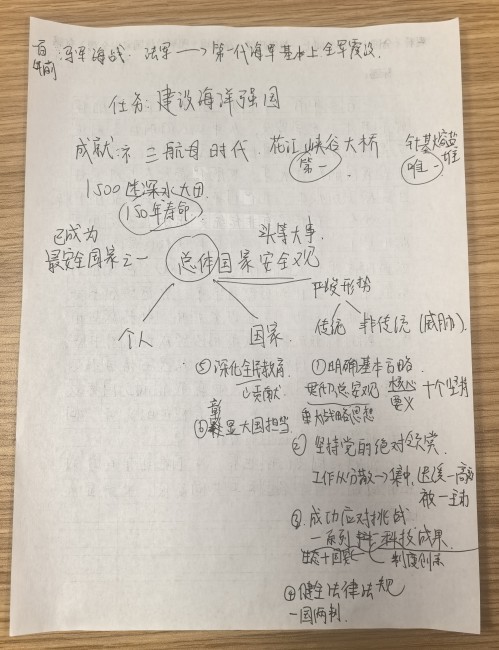 百年前 马军海战. 法军 → 第一代海军基本上全军覆没.
任务: 建设海洋强国
成就: 三航母时代. 花江峡谷大桥 第一 钍基熔盐堆 唯一
1500 深水大
150年寿命
已成为 头等大事.
最安全国家之一 总体国家安全观
严峻形势
个人 国家. 传统 非传统 (威胁).
⑤ 深化全民教育 ① 明确基本方略.
↓贡献 总安观 核心要义 十个坚持
重大战略思想
⑥ 彰显大国担当. ② 坚持党的绝对领党
工作从分散→集中, 迟缓→高效
被→主动
③. 成功应对挑战
一系列 科技成果.
生态+国 制度创
④ 健全法律法规
一国两制.